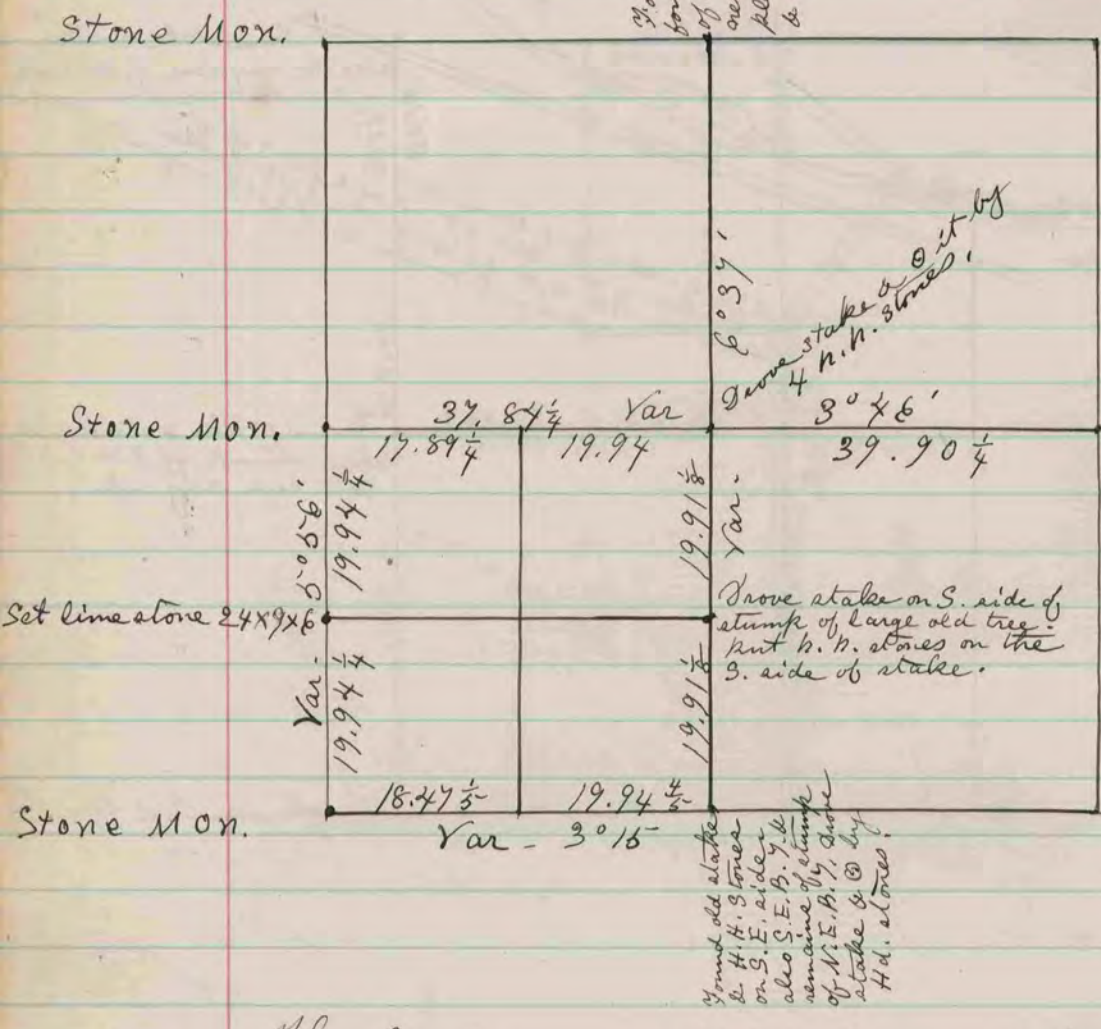 Stone Mon.
6° 37'
Drove stake & ⊙ it by
4 n.h. stones.
Stone Mon.
37.84 1/4 Var 3° 46'
17.89 1/4 19.94 39.90 1/4
Var. 5° 56'
19.94 1/4
19.91 1/8
Var.
Set lime stone 24x9x6
Drove stake on S. side of
stump of large old tree.
Put h.h. stones on the
S. side of stake.
19.94 1/4
19.91 1/8
18.47 1/5 19.94 4/5
Stone Mon.
Var - 3° 15
Found old stake
& H.H. Stones
on S.E. side
also S.E.B.T. &
remains of stump
of N.E.B.T. Drove
stake & ⊙ by
Hd. stones.